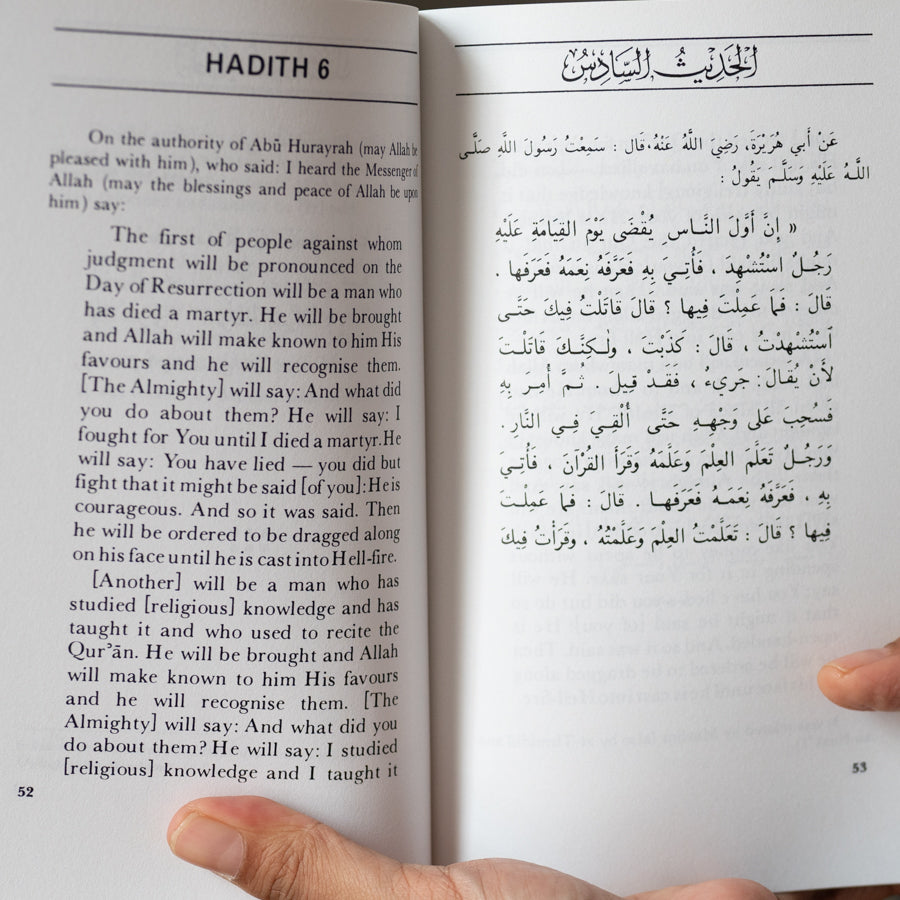 HADITH 6
On the authority of Abū Hurayrah (may Allah be
pleased with him), who said: I heard the Messenger of
Allah (may the blessings and peace of Allah be upon
him) say:
The first of people against whom
judgment will be pronounced on the
Day of Resurrection will be a man who
has died a martyr. He will be brought
and Allah will make known to him His
favours and he will recognise them.
[The Almighty] will say: And what did
you do about them? He will say: I
fought for You until I died a martyr. He
will say: You have lied — you did but
fight that it might be said [of you]: He is
courageous. And so it was said. Then
he will be ordered to be dragged along
on his face until he is cast into Hell-fire.
[Another] will be a man who has
studied [religious] knowledge and has
taught it and who used to recite the
Qurʾān. He will be brought and Allah
will make known to him His favours
and he will recognise them. [The
Almighty] will say: And what did you
do about them? He will say: I studied
[religious] knowledge and I taught it
52
الحَدِيثُ السَّادِسُ
عَنْ أَبي هُرَيْرَةَ، رَضِيَ اللَّهُ عَنْهُ، قال : سَمِعْتُ رَسُولَ اللَّهِ صَلَّى
اللَّهُ عَلَيْهِ وَسَلَّمَ يَقُولُ :
« إِنَّ أَوَّلَ النَّاسِ يُقْضَى يَوْمَ القِيَامَةِ عَلَيْهِ
رَجُلٌ اسْتُشْهِدَ ، فَأُتِيَ بِهِ فَعَرَّفَهُ نِعَمَهُ فَعَرَفَها .
قَالَ : فَمَا عَمِلْتَ فِيها ؟ قالَ قَاتَلْتُ فِيكَ حَتَّى
اسْتُشْهِدْتُ ، قَالَ : كَذَبْتَ ، ولٰكِنَّكَ قَاتَلْتَ
لأَنْ يُقَالَ : جَرِيءٌ ، فَقَدْ قِيلَ . ثُمَّ أُمِرَ بِهِ
فَسُحِبَ عَلَى وَجْهِهِ حَتَّى أُلْقِيَ فِي النَّارِ .
وَرَجُلٌ تَعَلَّمَ العِلْمَ وَعَلَّمَهُ وَقَرَأَ القُرْآنَ ، فَأُتِيَ
بِهِ ، فَعَرَّفَهُ نِعَمَهُ فَعَرَفَها . قَالَ : فَمَا عَمِلْتَ
فِيها ؟ قَالَ : تَعَلَّمْتُ العِلْمَ وَعَلَّمْتُهُ ، وَقَرَأْتُ فِيكَ
53